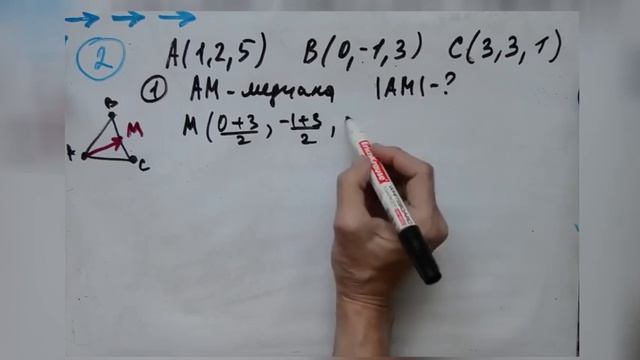 ② A(1,2,5) B(0,-1,3) C(3,3,1)
① AM - медиана |AM| - ?
M(0+3/2, -1+3/2,
B
M
A
C